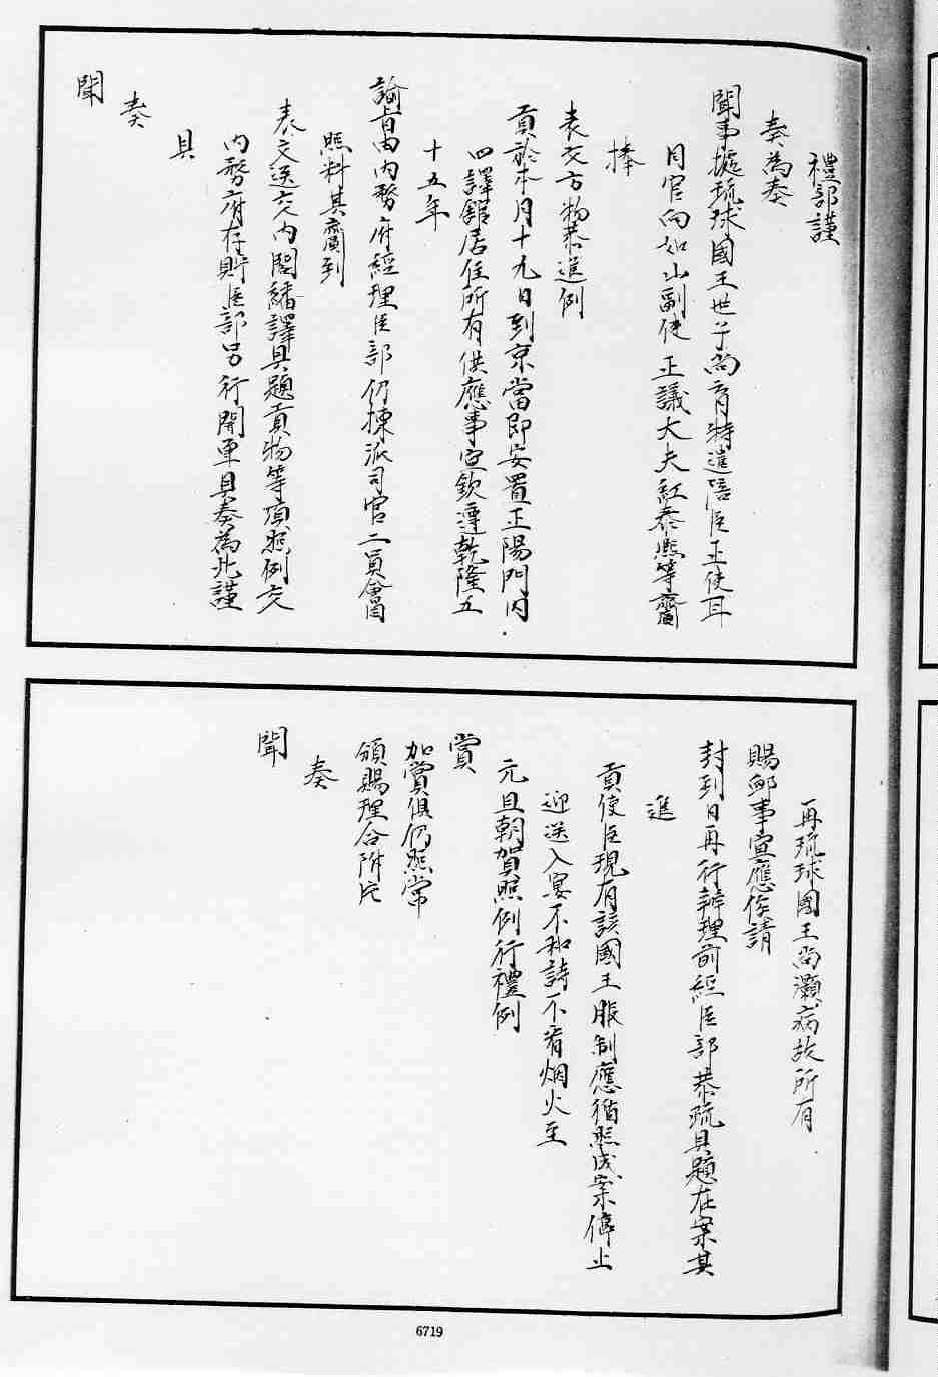 禮部謹
奏為奏
聞事據琉球國王世子尚育特遣陪臣正使耳
目官向如山副使正議大夫紅泰熙等齎
捧
表文方物恭進例
貢於本月十九日到京當即安置正陽門內
四譯舘居住所有供應事宜欽遵乾隆五
十五年
諭旨由內務府經理臣部仍揀派司官二員會同
照料其齎到
表文送交內閣繙譯具題貢物等項照例交
內務府存貯臣部另行開單具奏為此謹
具
奏
聞
再琉球國王尚灝病故所有
賜卹事宜應俟請
封到日再行辦理前經臣部恭疏具題在案其
進
貢使臣現有該國王服制應循照成案停止
迎送入宴不和詩不看烟火至
元旦朝賀照例行禮例
賞
加賞俱仍照常
頒賜理合附片
奏
聞
6719